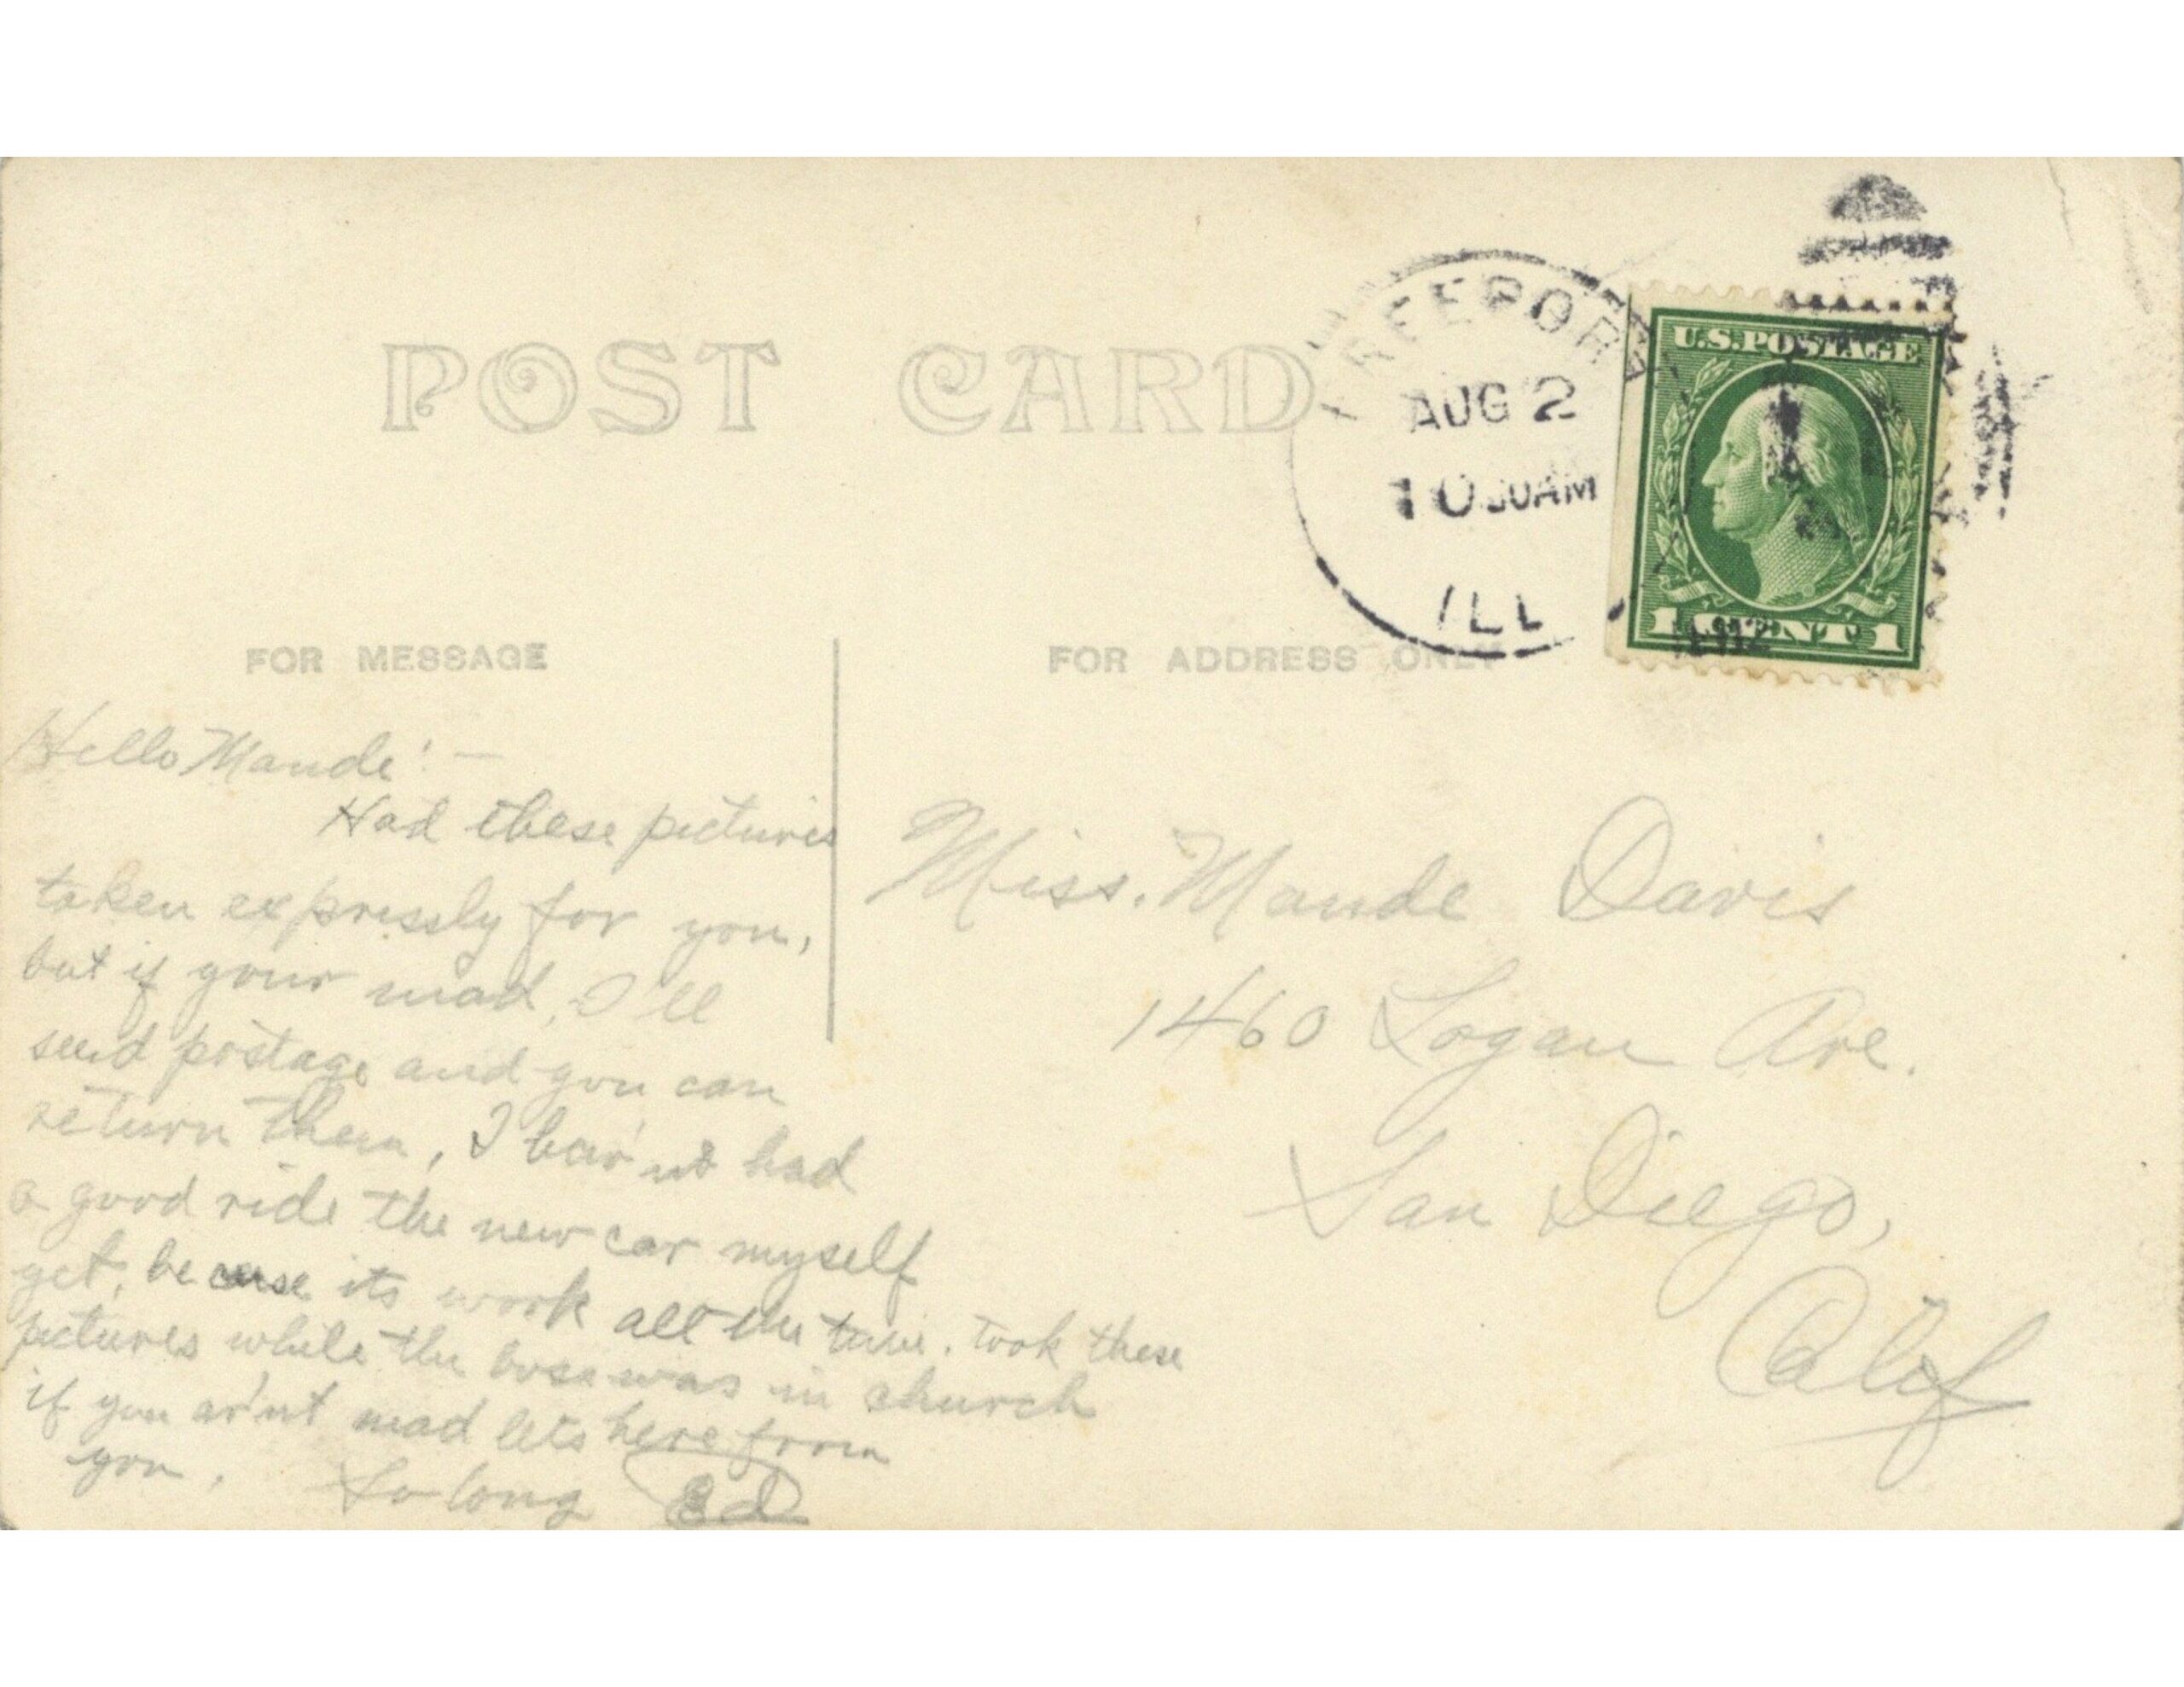 POST CARD
FREEPORT
AUG 2
10 30AM
ILL
U.S. POSTAGE
1 CENT 1
FOR MESSAGE
FOR ADDRESS ONLY
Hello Maude! —
Had these pictures
taken expressly for you,
but if your mad, I'll
send postage and you can
return them, I hav'nt had
a good ride the new car myself
yet, because its work all the time. Took these
pictures while the boss was in church
if you ar'nt mad lets here from
you. So long Ed
Miss. Maude Davis
1460 Logan Ave.
San Diego,
Calif